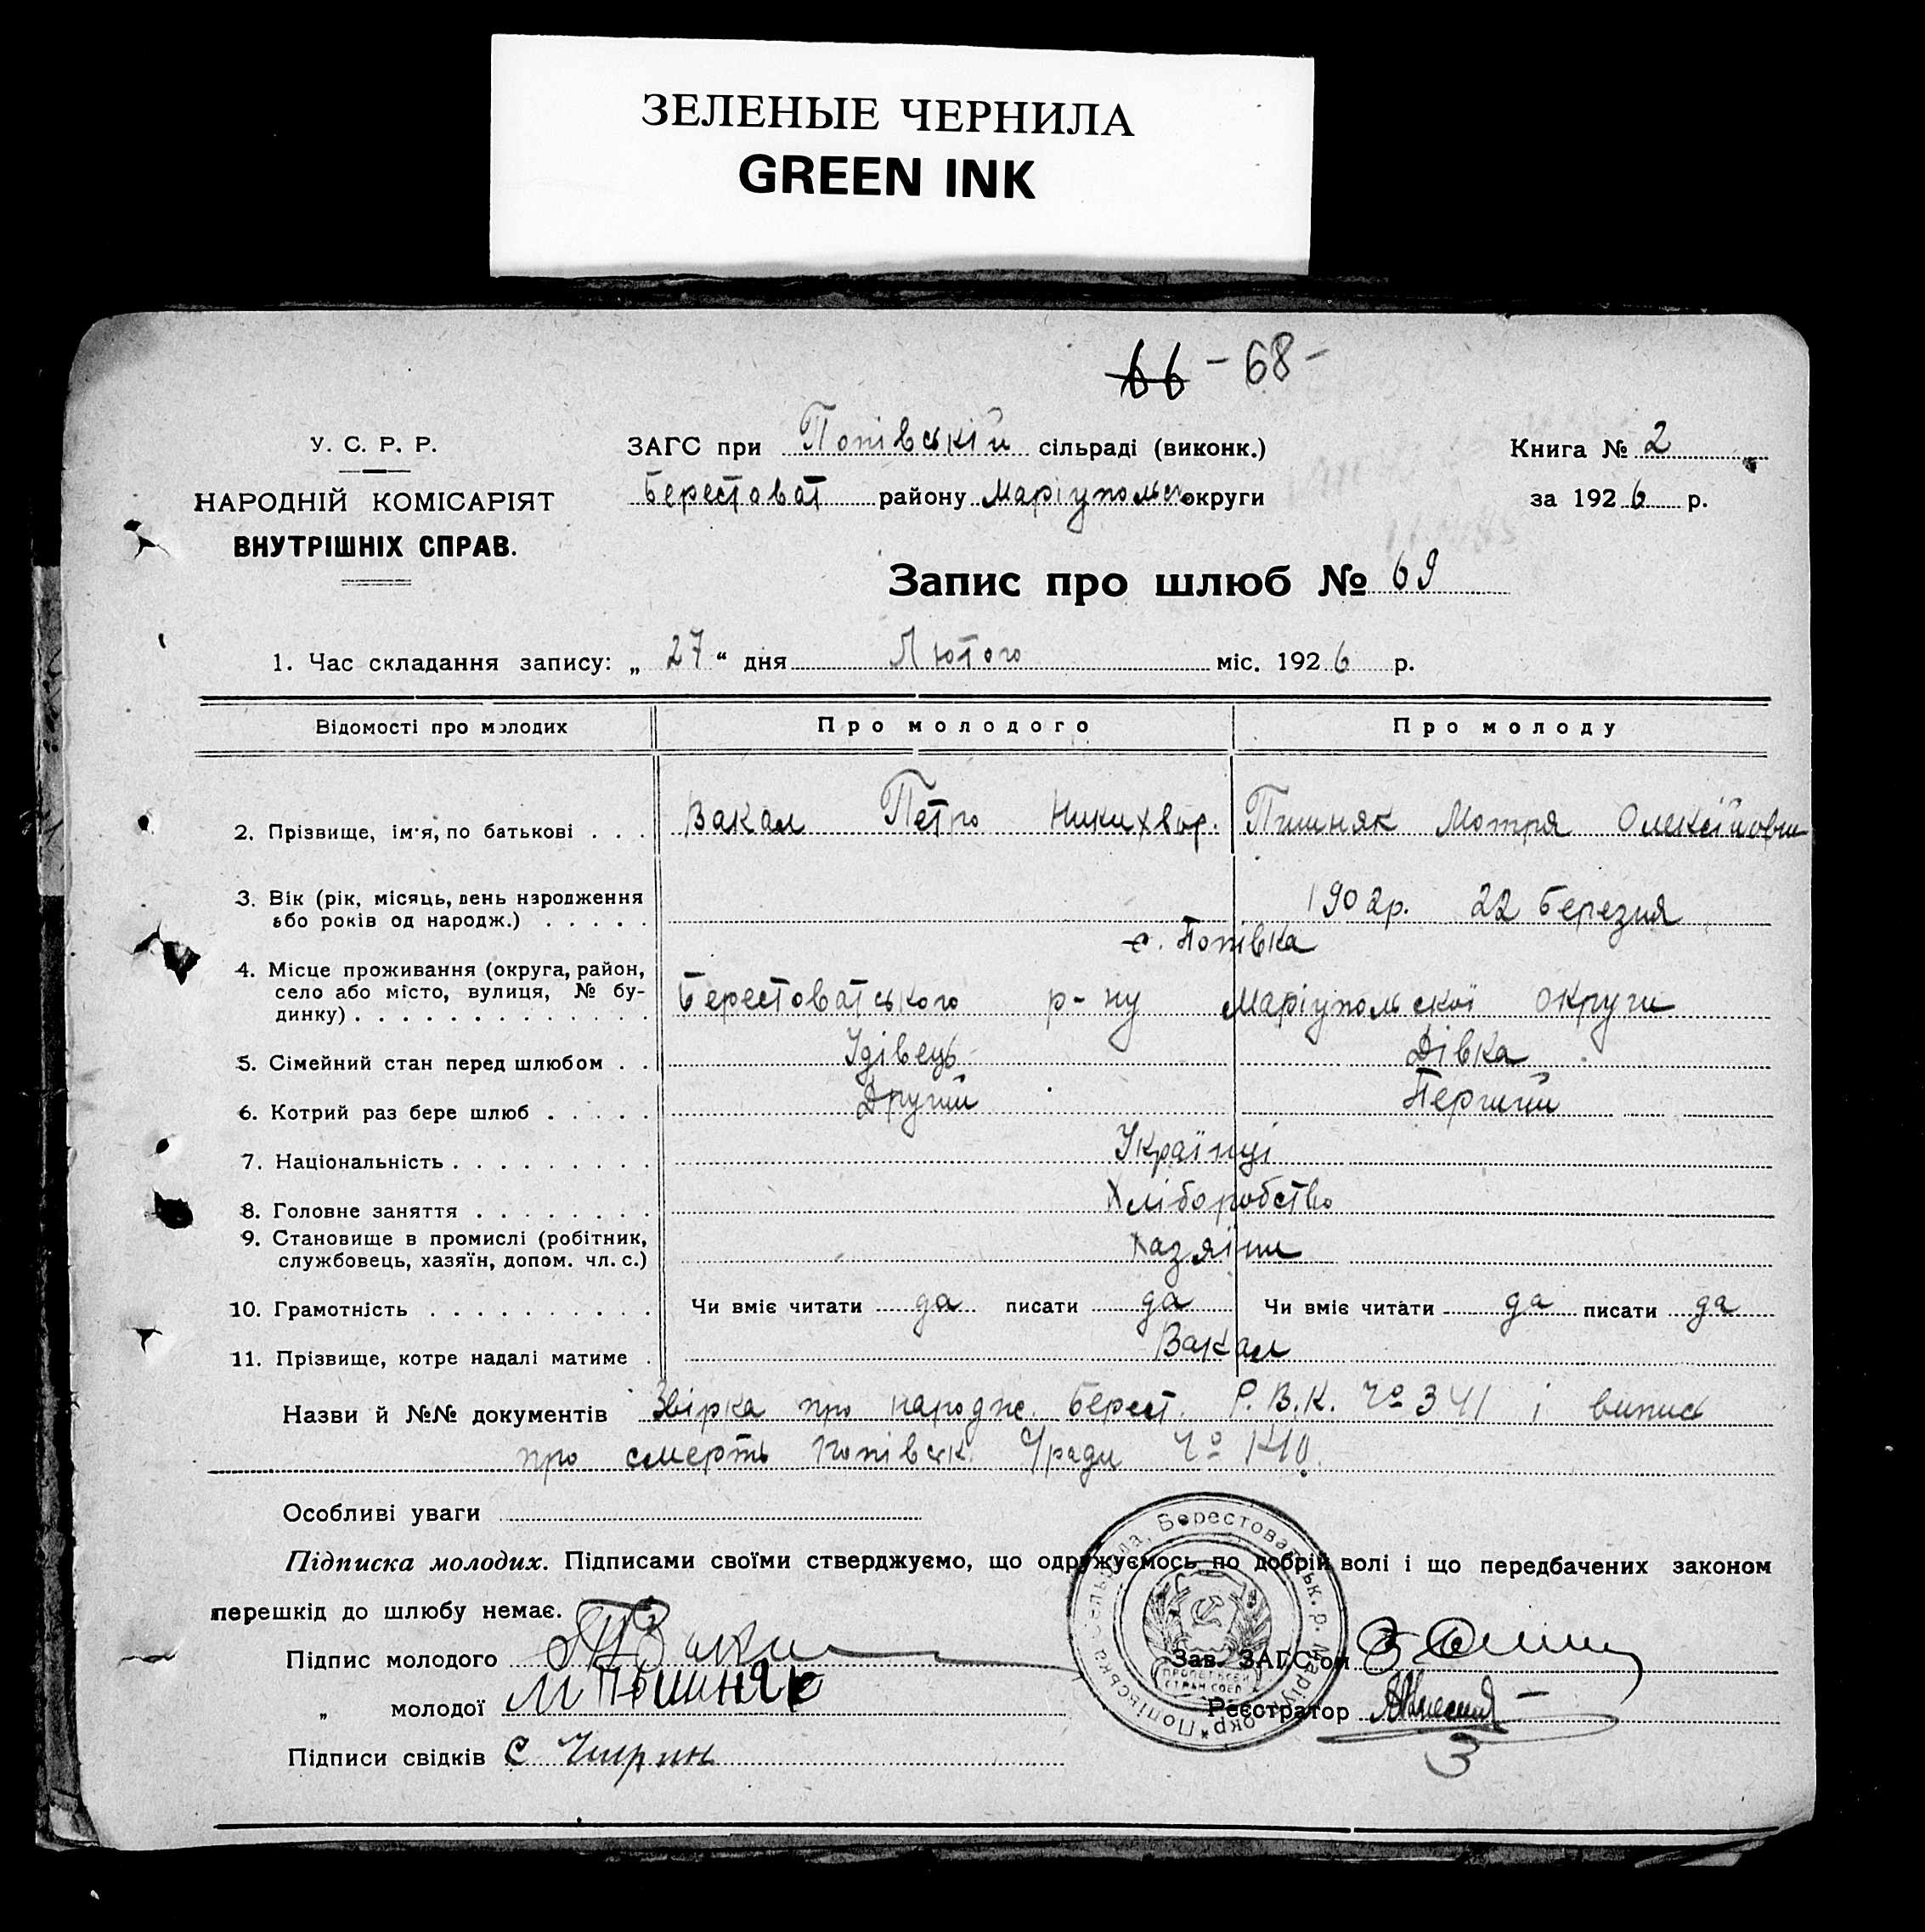 ЗЕЛЕНЫЕ ЧЕРНИЛА
GREEN INK
66 - 68 -
У. С. Р. Р.
НАРОДНІЙ КОМІСАРІЯТ
ВНУТРІШНІХ СПРАВ.
ЗАГС при Попівській сільраді (виконк.)
Берестоват району Маріупольс округи
Книга № 2
за 1926 р.
Запис про шлюб № 69
1. Час складання запису: „ 27 “ дня Лютого міс. 1926 р.
Відомості про молодих Про молодого Про молоду
2. Прізвище, ім'я, по батькові . . . Вакал Петро Никихвор. Пшиняк Мотря Олексійовн
3. Вік (рік, місяць, день народження
або років од народж.) . . . . . 1902р. 22 березня
с. Попівка
4. Місце проживання (округа, район,
село або місто, вулиця, № бу-
динку) . . . . . . . . . . . . . Берестоватського р-ну Маріупольскої округи
5. Сімейний стан перед шлюбом . . Удівець Дівка
6. Котрий раз бере шлюб . . . . . Другий Перший
7. Національність . . . . . . . . . Українці
8. Головне заняття . . . . . . . . Хліборобство
9. Становище в промислі (робітник,
службовець, хазяїн, допом. чл. с.) Хазяїни
10. Грамотність . . . . . . . . . . Чи вміє читати да писати да Чи вміє читати да писати да
11. Прізвище, котре надалі матиме . Вакал
Назви й №№ документів Звірка про народж. Берест. Р.В.К. № 341 і випис
про смерть Попівськ. У/ради №
Особливі уваги
Підписка молодих. Підписами своїми стверджуємо, що одружуємось по добрій волі і що передбачених законом
перешкід до шлюбу немає.
Підпис молодого
„ молодої М Пошиняк
Підписи свідків С Чирин
Зав. ЗАГС'ом
Реєстратор
3
Попівська сельрада, Берестоватськ. р. Маріуп. окр.
ПРОЛЕТАРІЙ